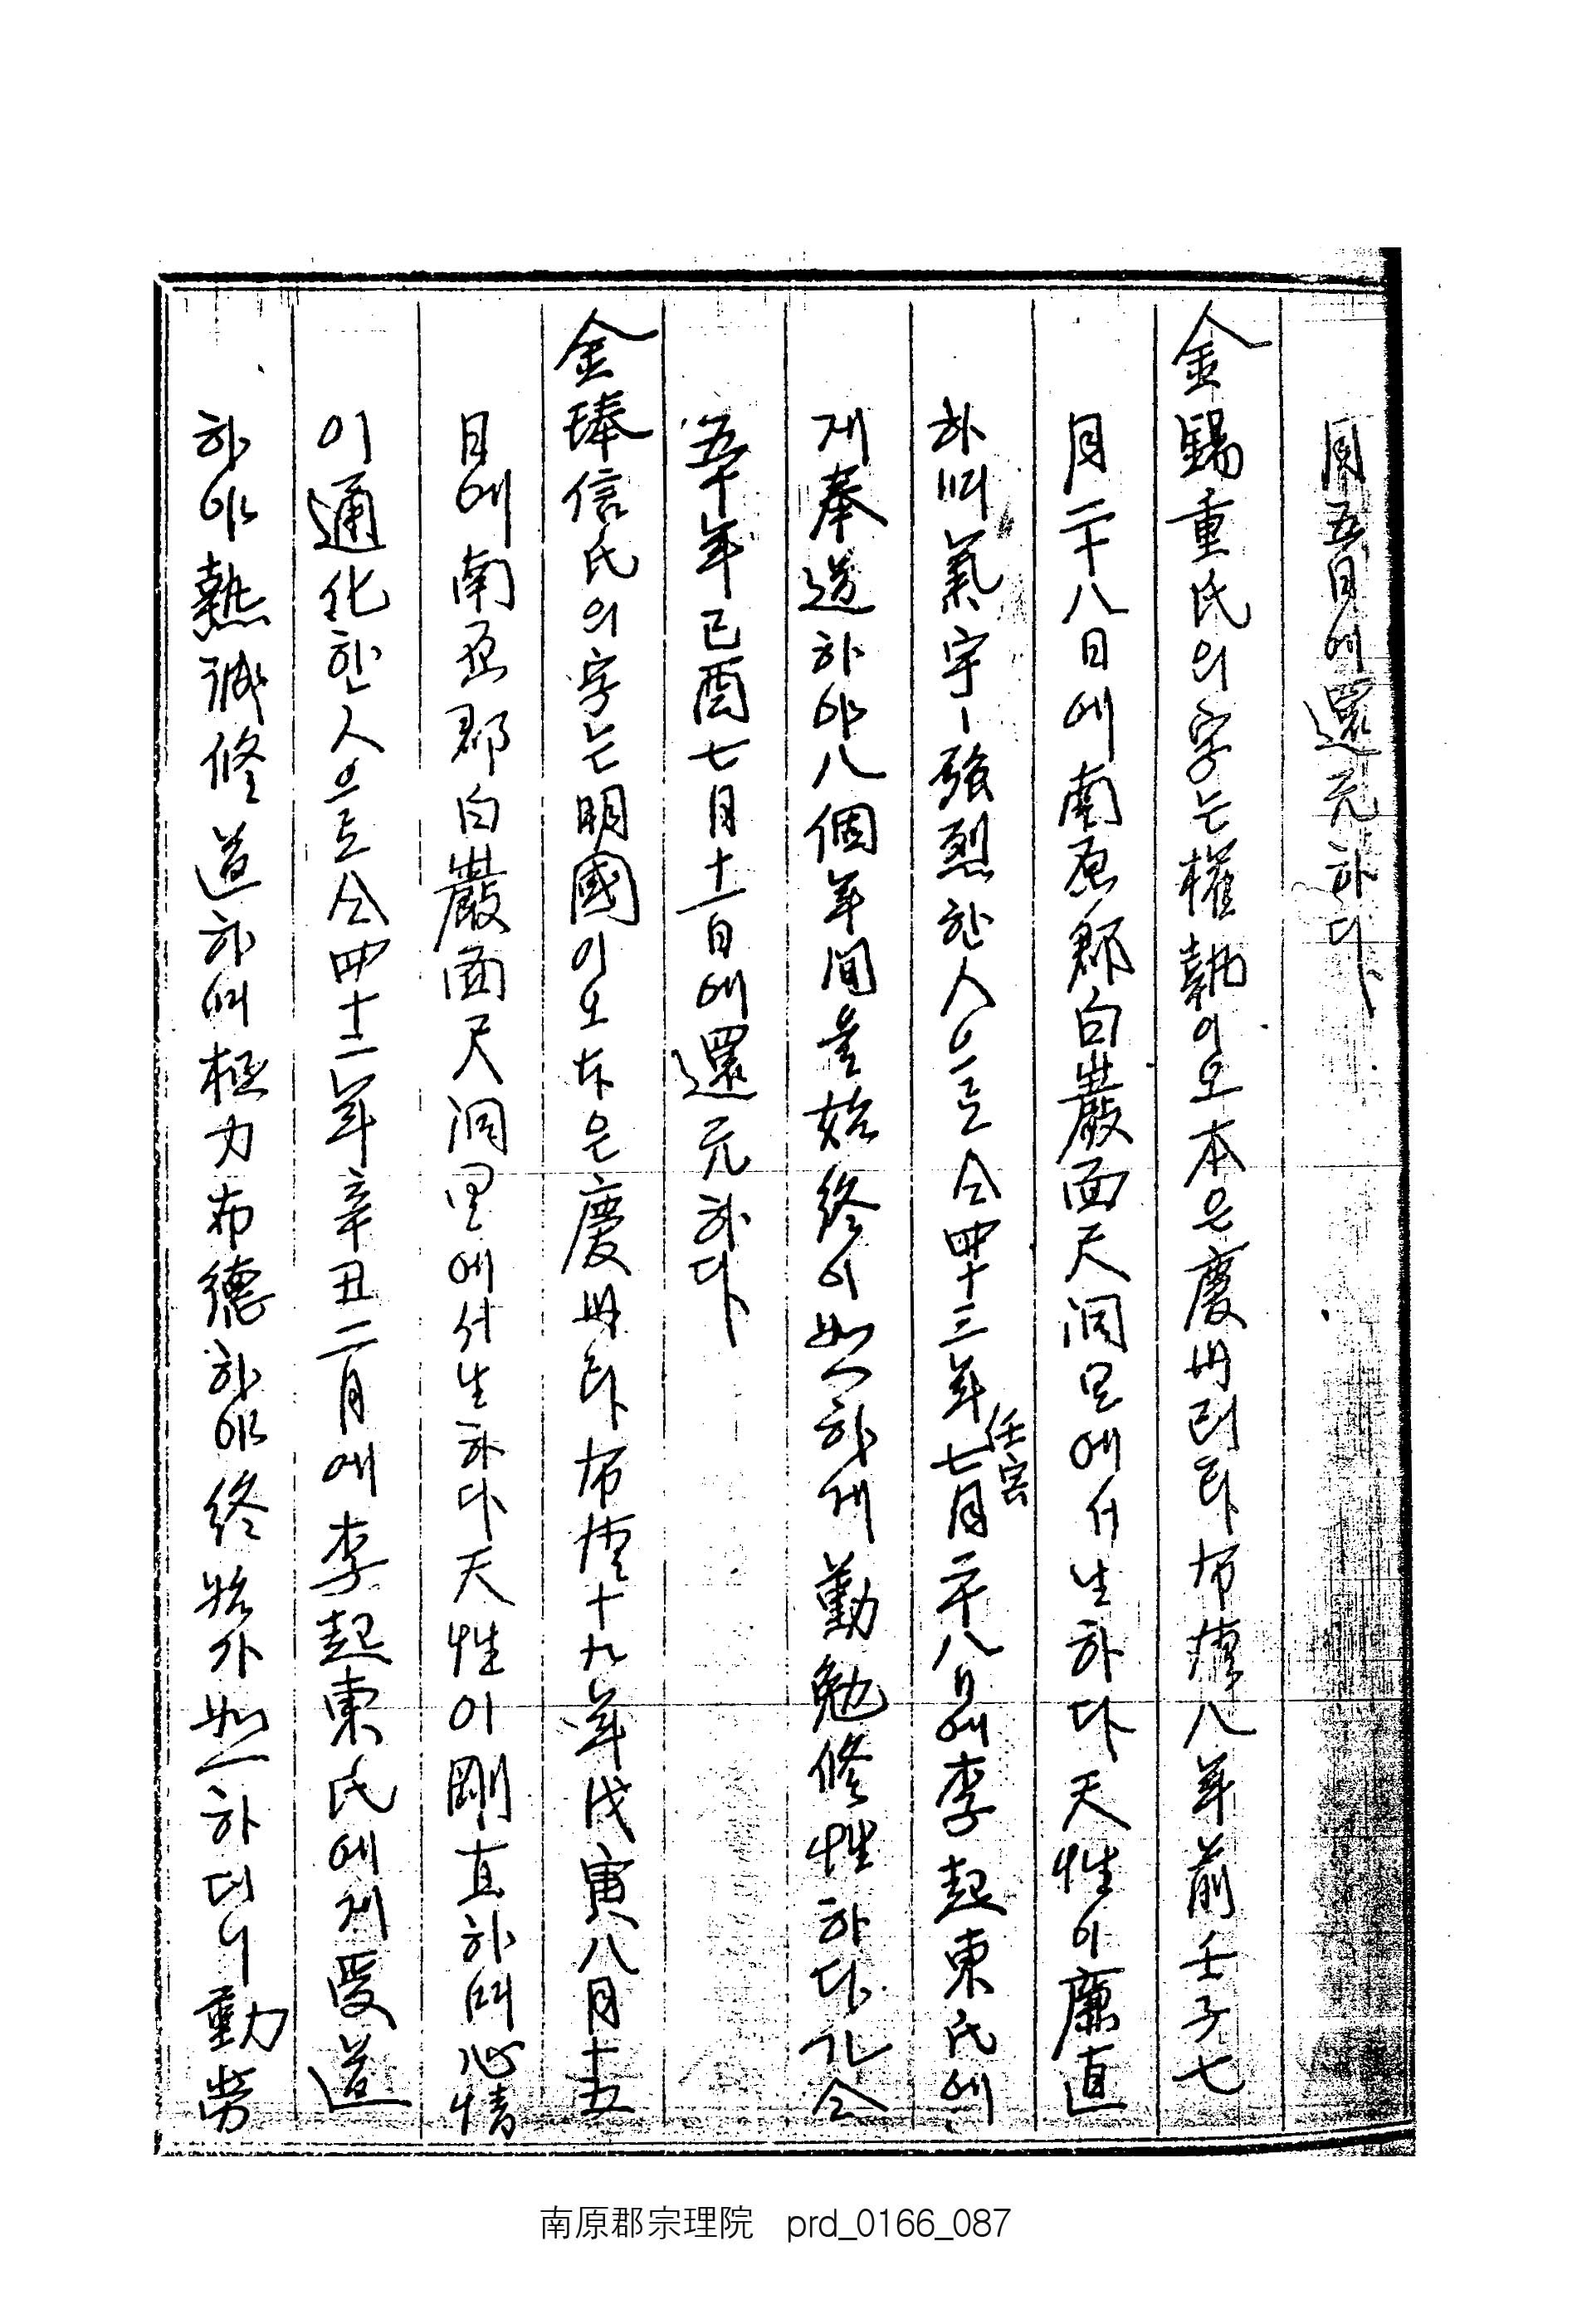 月五日에還元하다
金錫重氏의字는權執이오本은慶州러라布德八年前壬子七
月二十八日에南原郡白巖面尺洞里에서生하다天性이廉直
하며氣宇ㅣ强烈한人으로仝四十三年壬寅七月二十八日에李起東氏에
게奉道하야八個年間을始終이如一하게勤勉修性하다가仝
五十年己酉七月十一日에還元하다
金琫信氏의字는明國이오本은慶州라布德十九年戊寅八月十五
日에南原郡白巖面尺洞里에서生하다天性이剛直하며心情
이通化한人으로仝四十二年辛丑二月에李起東氏에게受道
하야熱誠修道하며極力布德하야終始가如一하더니勤勞
南原郡宗理院 prd_0166_087